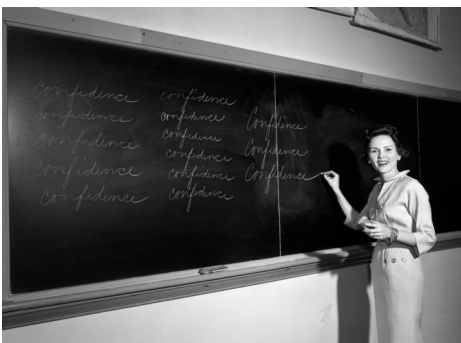 Confidence
confidence
confidence
confidence
confidence
confidence
confidence
confidence
confidence
confidence
confidence
Confidence
Confidence
Confidence